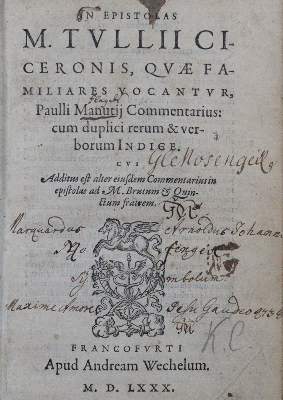 IN EPISTOLAS
M. TVLLII CI-
CERONIS, QVÆ FA-
MILIARES VOCANTVR,
Paulli Manutij Commentarius:
cum duplici rerum & ver-
borum INDICE.
CVI
Additus est alter eiusdem Commentarius in
epistolas ad M. Brutum & Quin-
ctum fratrem.
Marquardus
Arnoldus Johann
mbolum
K.C
FRANCOFVRTI
Apud Andream Wechelum.
M. D. LXXX.